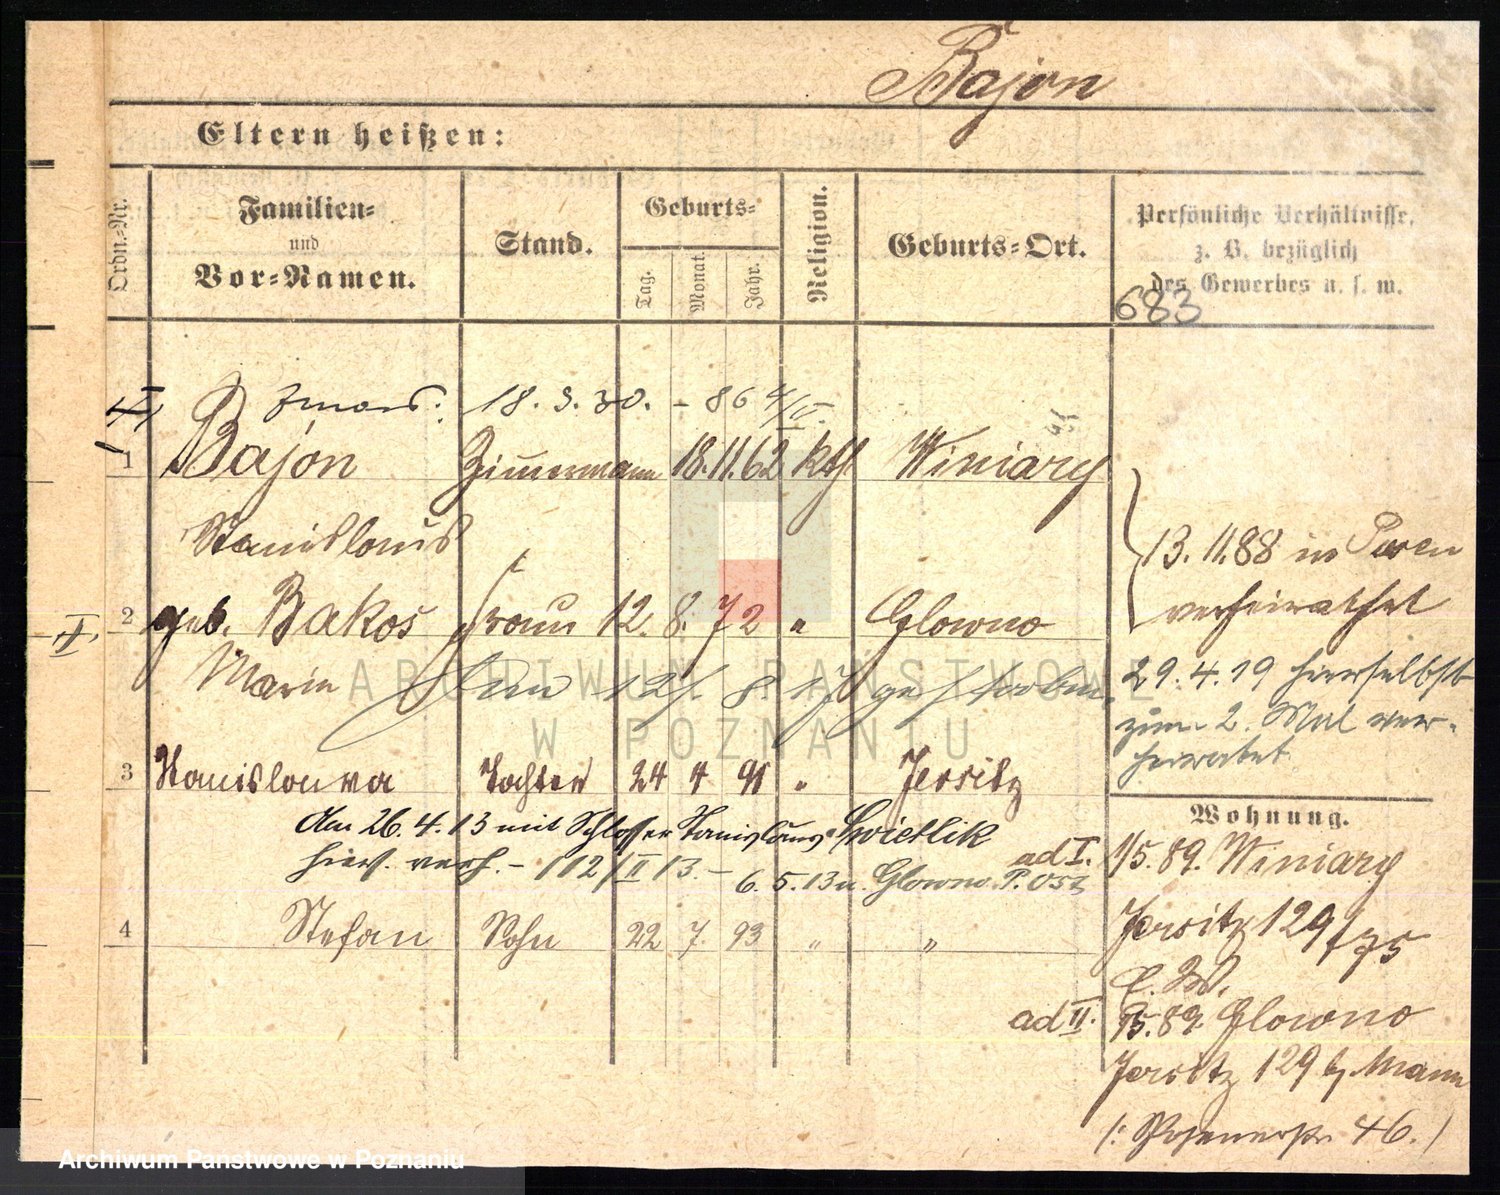 Bajon
Eltern heißen:
Ordn.-Nr.
Familien-
und
Vor-Namen.
Stand.
Geburts-
Tag.
Monat.
Jahr.
Religion.
Geburts-Ort.
Persönliche Verhältnisse,
z. B. bezüglich
des Gewerbes u. s. w.
683
I
18. 3. 30. - 86
1 Bajon Zimmermann 18. 11. 62 kth Winiary
Stanislaus
13. 11. 88 in Posen
verheirathet
2 geb. Bakos Frau 12. 8. 72 " Glowno
II
Maria
am 12/. 8. 17 gestorben.
29. 4. 19 hierselbst
zum 2. Mal ver-
heiratet
3 Stanislouva Tochter 24 4 91 " Jersitz
Am 26. 4. 13 mit Schlosser Stanislaus Swietlik
hier. verh. - 112/II 13. - 6. 5. 13 n. Glowno P. Ost
4 Stefan Sohn 22 7. 93 " "
Wohnung.
ad I. 1/5. 89. Winiary
Jersitz 129/75
ad II. 1/5. 89. Glowno
Jersitz 129 b/ Mann
(: Posenerstr. 46. )
ARCHIWUM PAŃSTWOWE
W POZNANIU
Archiwum Państwowe w Poznaniu